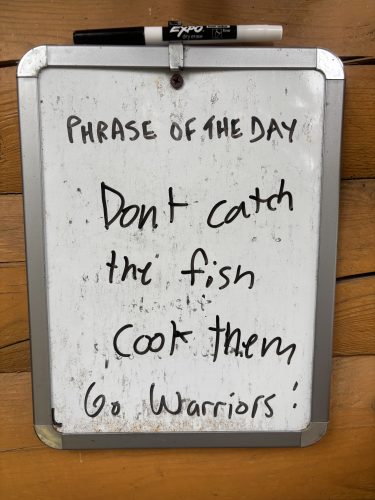 EXPO
dry erase
PHRASE OF THE DAY
Dont catch
the fish
cook them
Go Warriors!